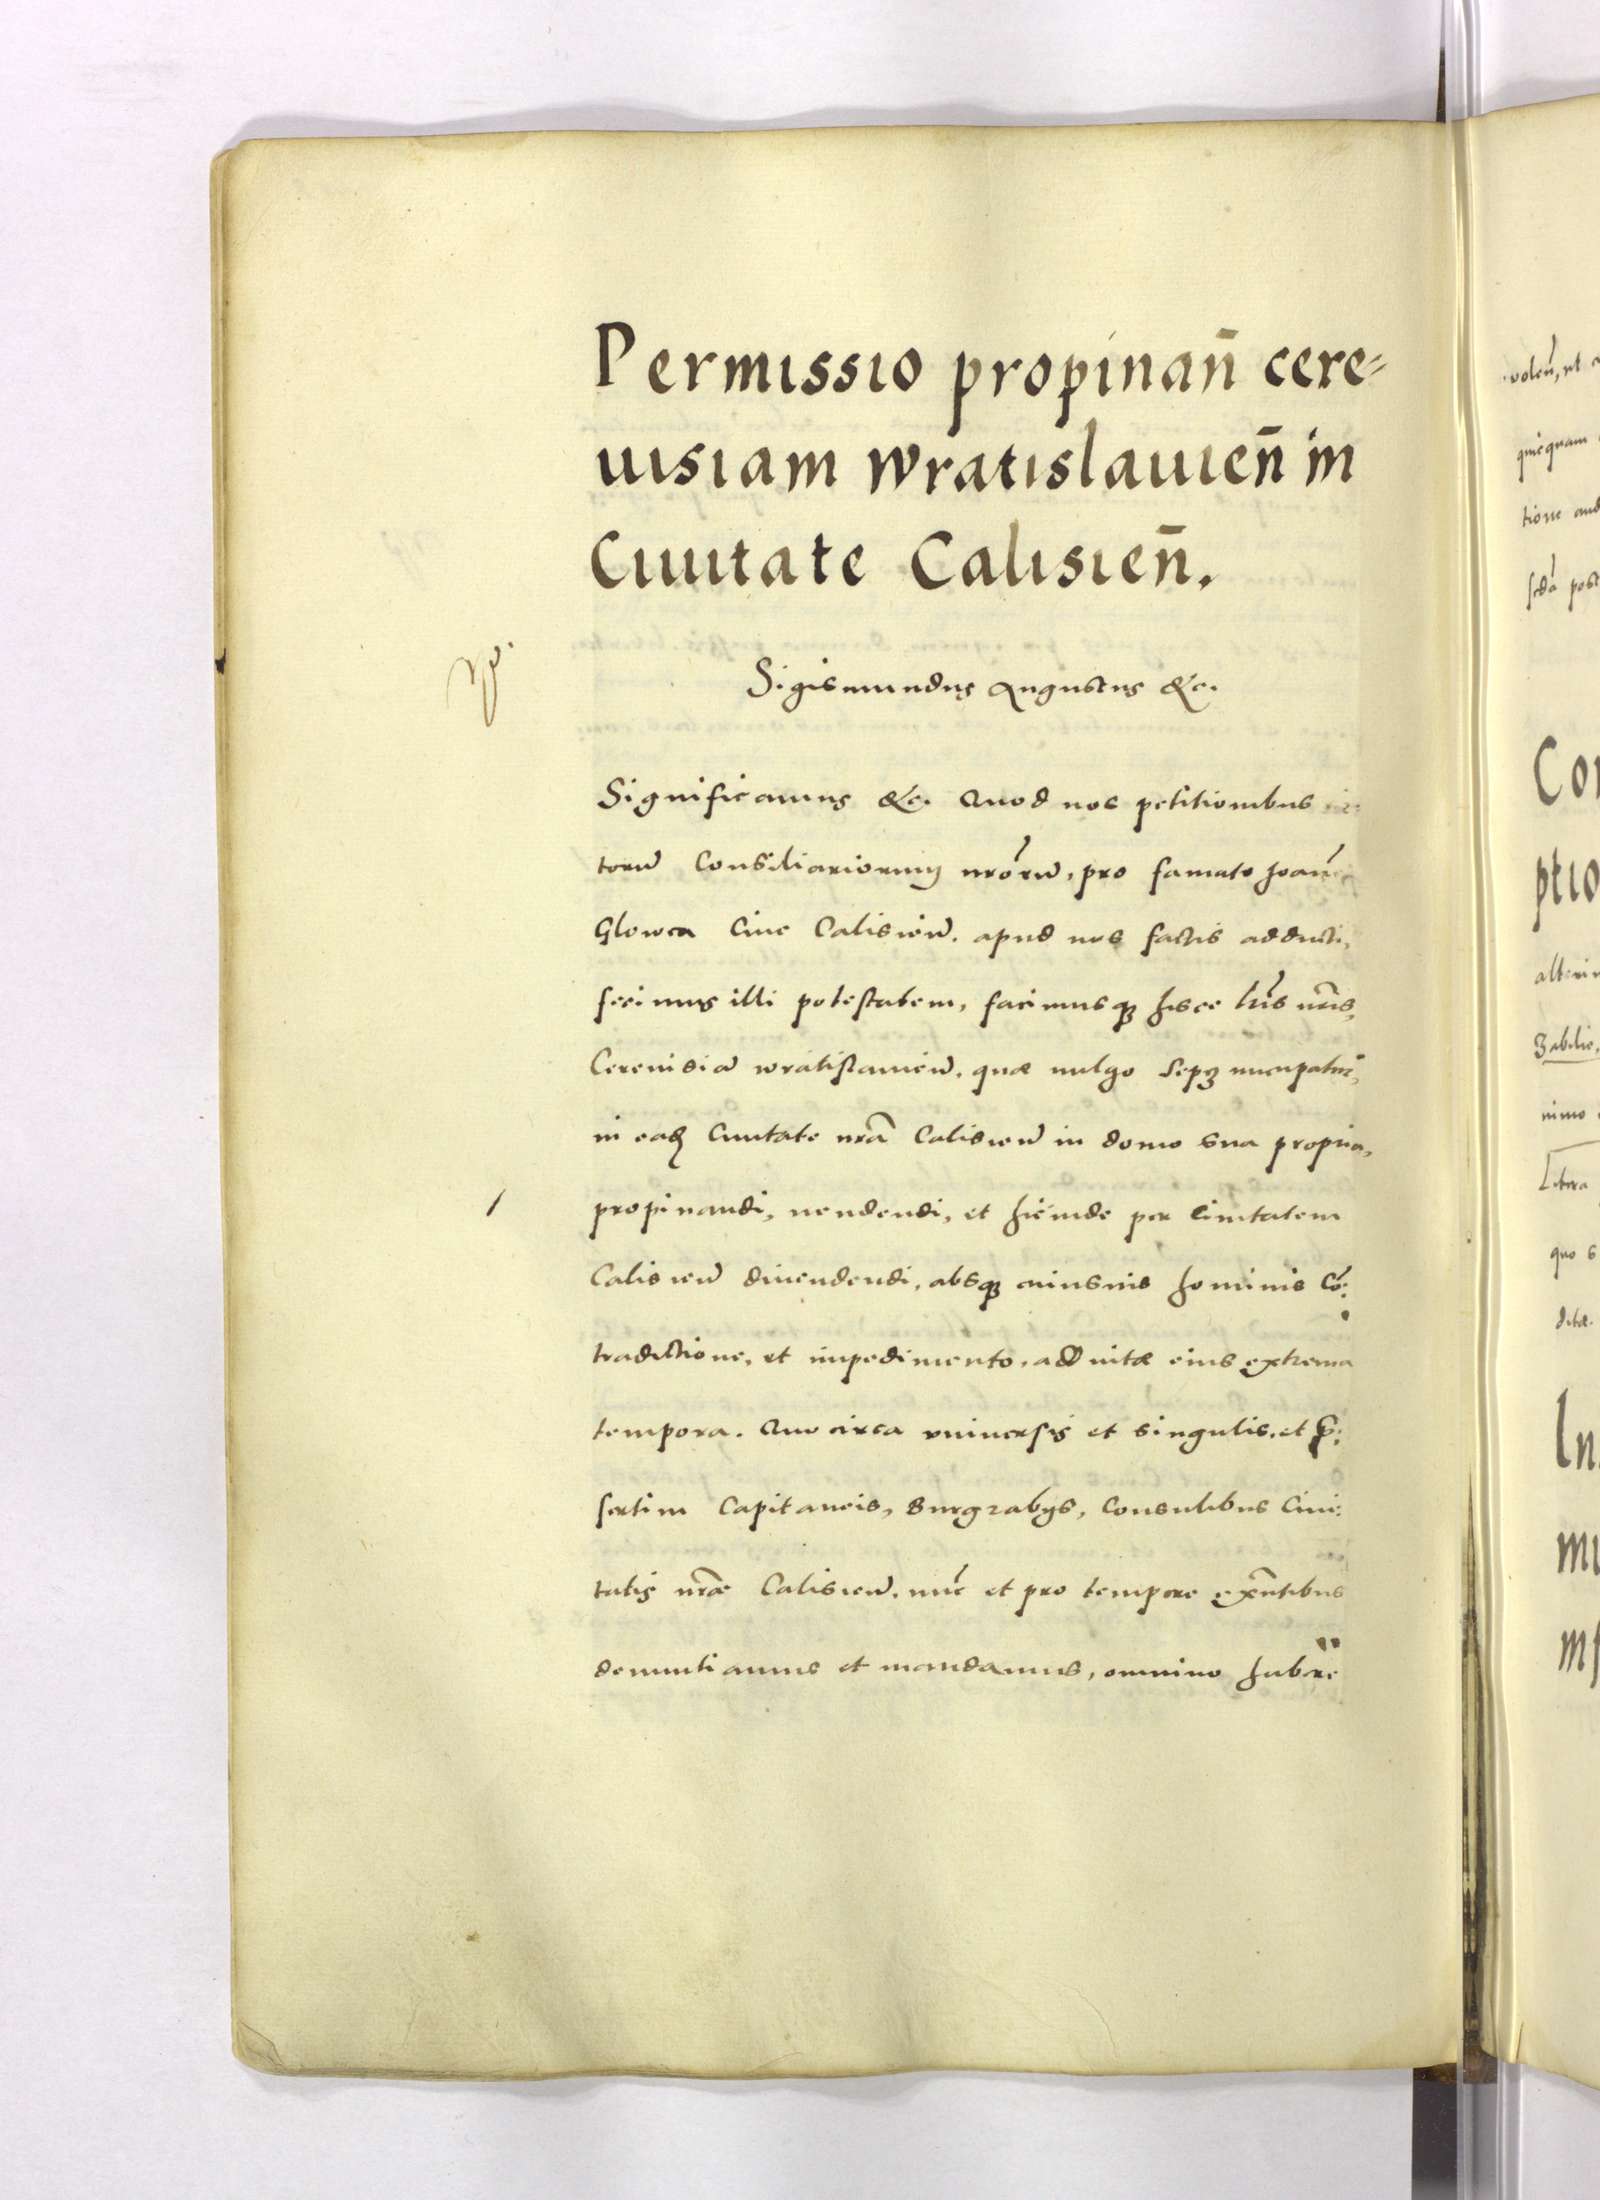 Permissio propinan̄ cere-
uisiam wratislauien̄ in
Ciuitate Calisien̄.
Sigismundus Augustus &c.
Significamus &c. Quod nos petitionibus
torū Consiliariorum nrōrū, pro famato Joan̄
Glowca Ciue Calisień. apud nos factis adducti,
fecimus illi potestatem, facimusq3 hisce lrīs nrīs,
Cereuisiā wratislauień. quæ uulgo Sepz nucupatur,
in eadē Ciuitate nrā Calisień in domo sua propria,
propinandi, uendendi, et hicinde per Ciuitatem
Calisień diuendendi, absq3 cuiusuis hominis Cō:
tradictione, et impedimento, ad uitæ eius extrema
tempora. Quocirca vniuersis et singulis, et p̄:
sertim Capitaneis, Burgrabijs, Consulibus Ciui:
tatis nrāe Calisień. nūc et pro tempore exn̄tibus
denuntiamus et mandamus, omnino habere
voleń, ut
quicquam
tione aud
sedā post
Con
ptio
alteri
Zabilie,
nimo
Libera
quo s
ditæ.
In
mu